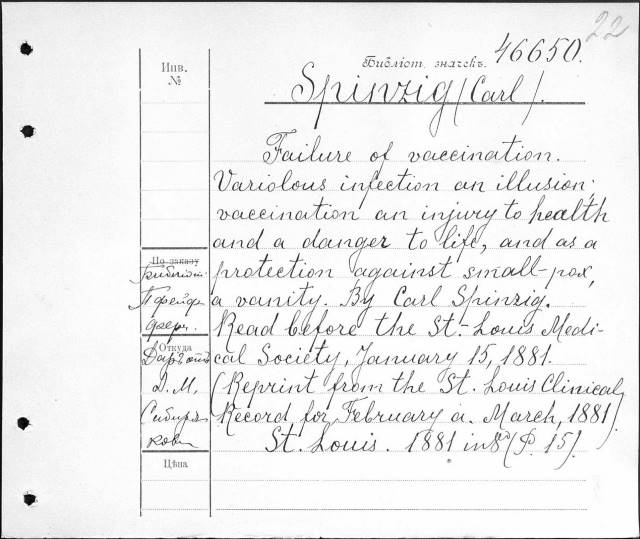 22
Библіот. значекъ. 46650.
Инв.
№
Spinzig (Carl).
Failure of vaccination.
Variolous infection an illusion;
vaccination an injury to health
and a danger to life, and as a
По заказу
protection against small-pox,
a vanity. By Carl Spinzig.
Read before the St.-Louis Medi-
Откуда
cal Society, January 15, 1881.
Даръ отъ
Д. М.
(Reprint from the St. Louis Clinical
Сибиря-
кова
Record for February a. March, 1881).
St. Louis. 1881 in 8° (P. 15).
Цѣна